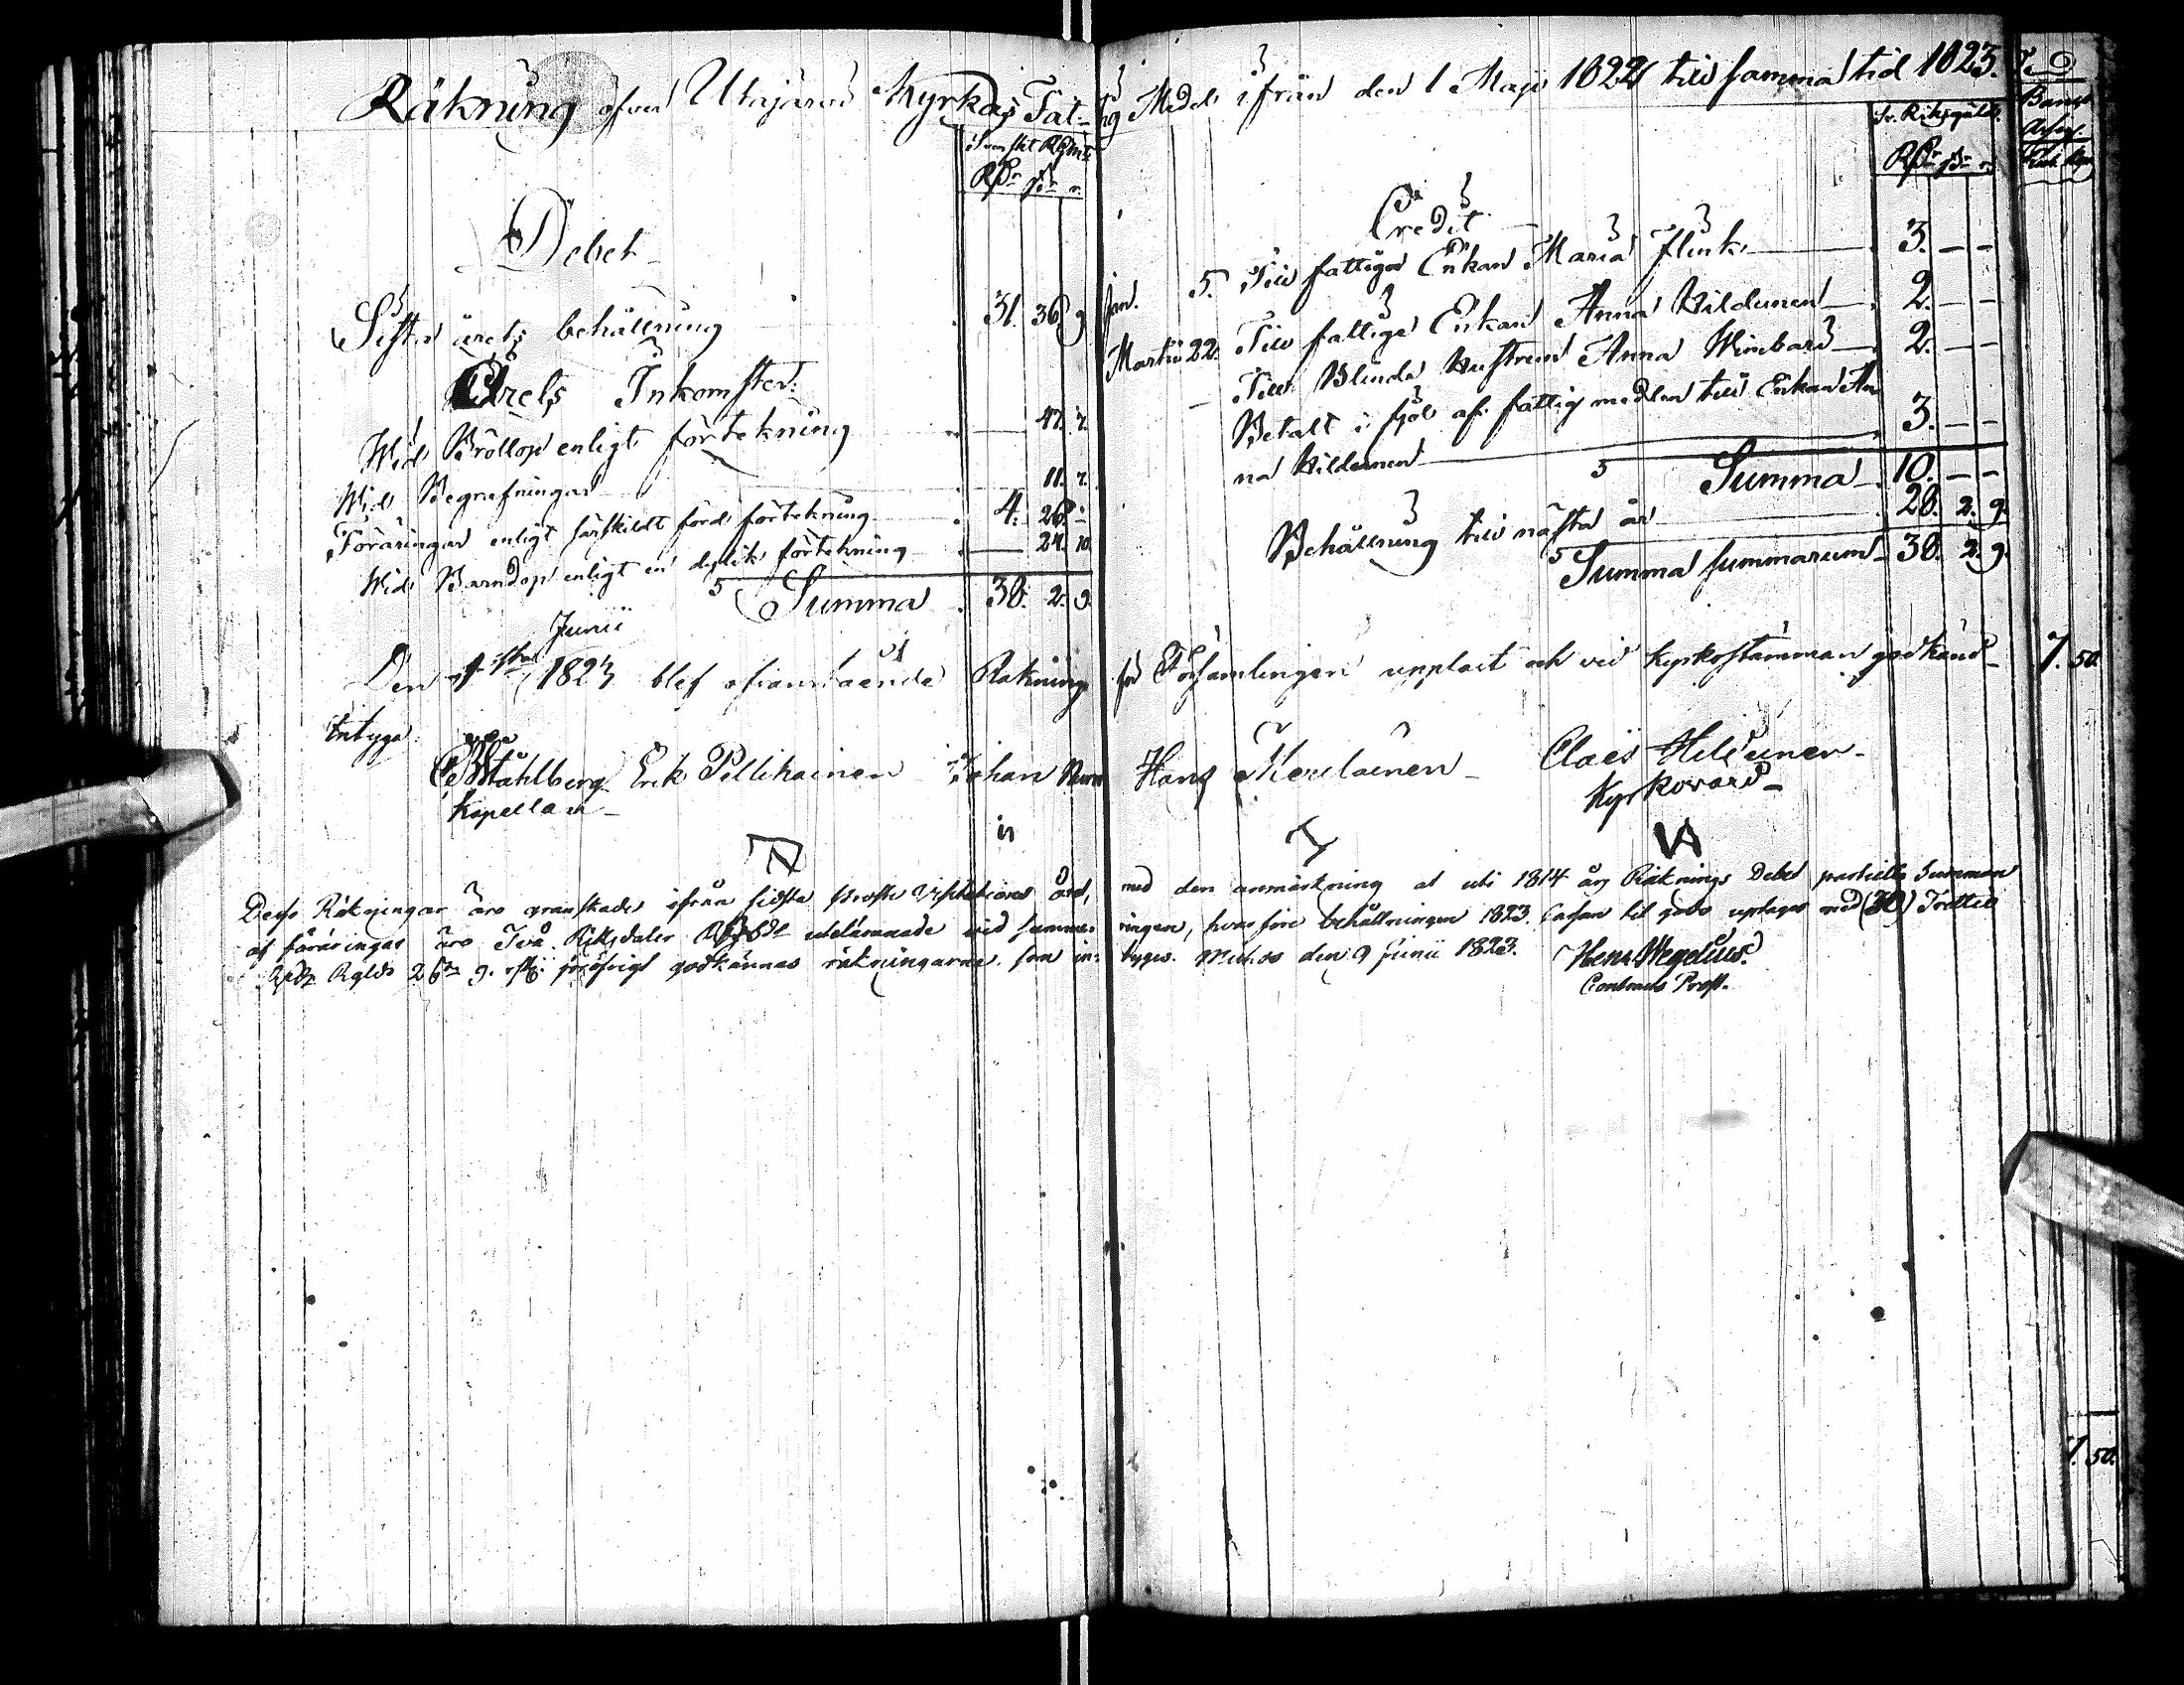 Räkning öfver Utajärvi Kyrkas Fattig Medel ifrån den 1 Maji 1822 till samma tid 1823.
Svenskt Rgms
Rdr sk r.
Debet
Sista årets behållning 31. 36. 9
Årets Inkomster:
Wid Bröllop enligt förtekning — 47. 2.
Wid Begrafningar — 11. 2.
Föräringar enligt särskildt förd förtekning 4. 26. -
Wid Barndop enligt en dylik förtekning — 24. 10.
Summa 38. 2. 9.
Sv. Riksgäld.
Rdr sk r.
Credit
Jan. 5. Till fattiga Enkan Maria Flink 3. — —
Martii 22. Till fattiga Enkan Anna Hildunen 2. — —
— Till Blinda Hustrun Anna Wimbarj 2. — —
Betalt i fjol af fattig medlen till Enkan An
na Hildunen 3. — —
Summa 10. — —
Behållning till nästa år 28. 2. 9.
Summa summarum 38. 2. 9.
Junii
Den 1sta 1823 blef ofvanstående Räkning för Församlingen uppläst och vid Kyrkostämman godkänd
intyga
Ståhlberg Erik Pellikainen Johan Hans Keralainen Claës Hildunen
Kapellan Kyrkovärd
Desse Räkningar äro granskade ifrån sidsta Prosте Visitations året, med den anmärkning at uti 1814 års Räknings Debet partiella Summan
af föräringar äro Två Riksdaler Rgs utelämnade vid summeringen, hvarföre behållningen 1823 Cassan til godo uptages med (30) Trettio
Rdr Rglds 2 sk 9. r. föröfrigt godkännas räkningarne, som intygas. Muhos den 9 Junii 1823. Henr. Wegelius.
Contracts Prost.
Banco
7. 50.
7. 50.